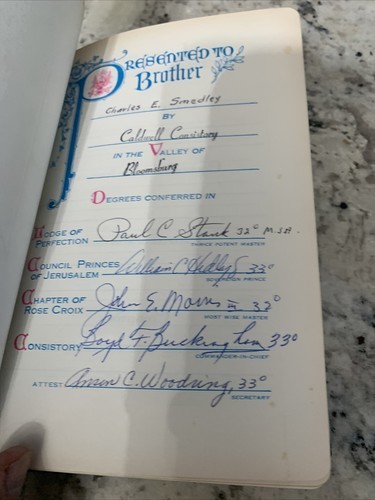 PRESENTED TO
Brother
Charles E. Smedley
BY
Caldwell Consistory
IN THE VALLEY OF
Bloomsburg
DEGREES CONFERRED IN
LODGE OF
PERFECTION Paul C Stauk 32° M.S.A.
THRICE POTENT MASTER
COUNCIL PRINCES
OF JERUSALEM William C 33°
SOVEREIGN PRINCE
CHAPTER OF
ROSE CROIX John E. Morris 32°
MOST WISE MASTER
CONSISTORY Boyd F. Buckingham 33°
COMMANDER-IN-CHIEF
ATTEST Anson C. Woodring, 33°
SECRETARY